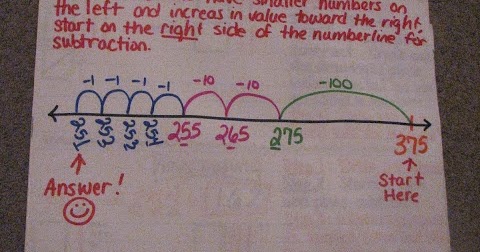 have smaller numbers on
the left and increas in value toward the right,
start on the right side of the numberline for
subtraction.
-1 -1 -1 -1 -10 -10 -100
251 252 253 254 255 265 275 375
Answer!
Start
Here